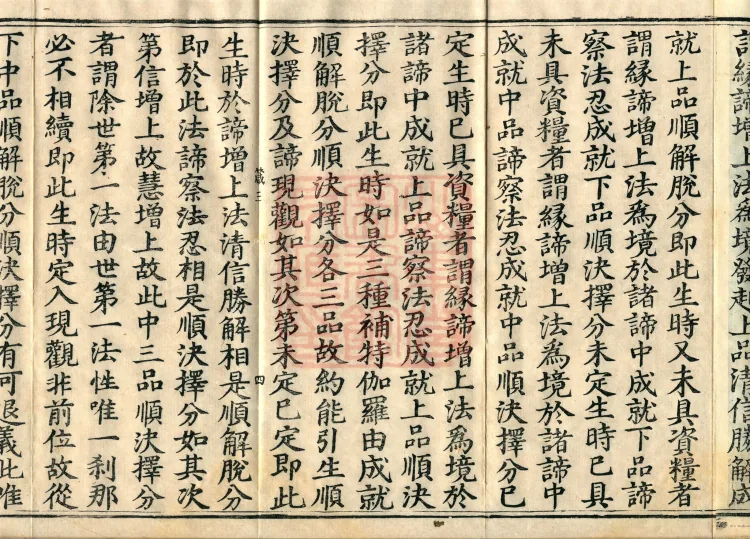 謂緣諦增上法爲境發起上品清信勝解成
就上品順解脫分即此生時又未具資糧者
謂緣諦增上法爲境於諸諦中成就下品諦
察法忍成就下品順決擇分未定生時巳具
未具資糧者謂緣諦增上法爲境於諸諦中
成就中品諦察法忍成就中品順決擇分巳
定生時巳具資糧者謂緣諦增上法爲境於
諸諦中成就上品諦察法忍成就上品順決
擇分即此生時如是三種補特伽羅由成就
順解脫分順決擇分各三品故約能引生順
決擇分及諦現觀如其次第未定巳定即此
三 四
生時於諦增上法清信勝解相是順解脫分
即於此法諦察法忍相是順決擇分如其次
第信增上故慧增上故此中三品順決擇分
者謂除世第一法由世第一法性唯一刹那
必不相續即此生時定入現觀非前位故從
下中品順解脫分順決擇分有可退義此唯